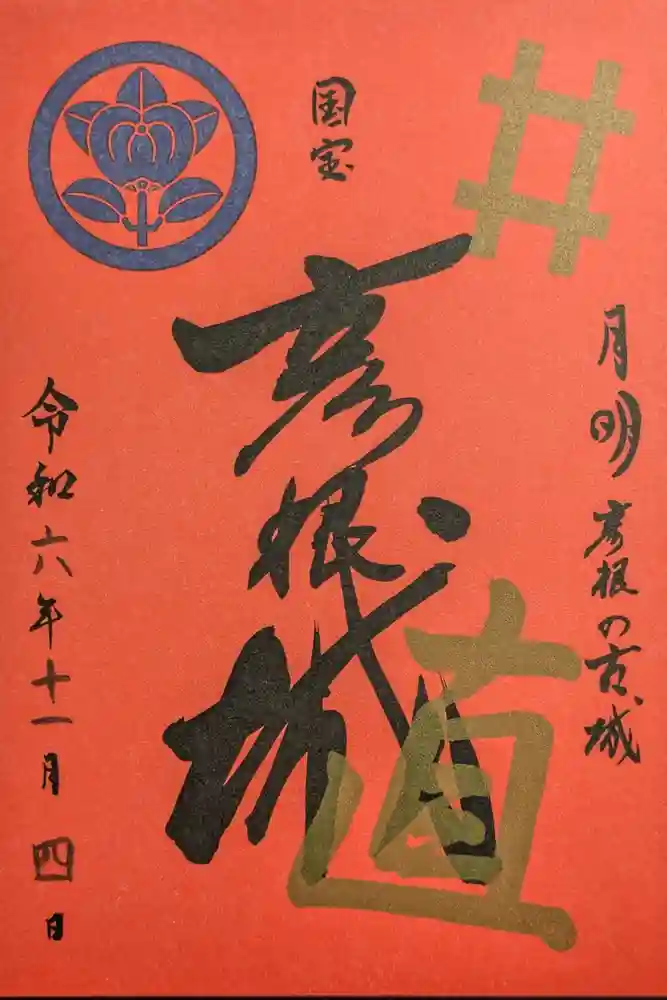 月明 彦根の古城
井
国宝
彦根城
直
令和六年十一月四日